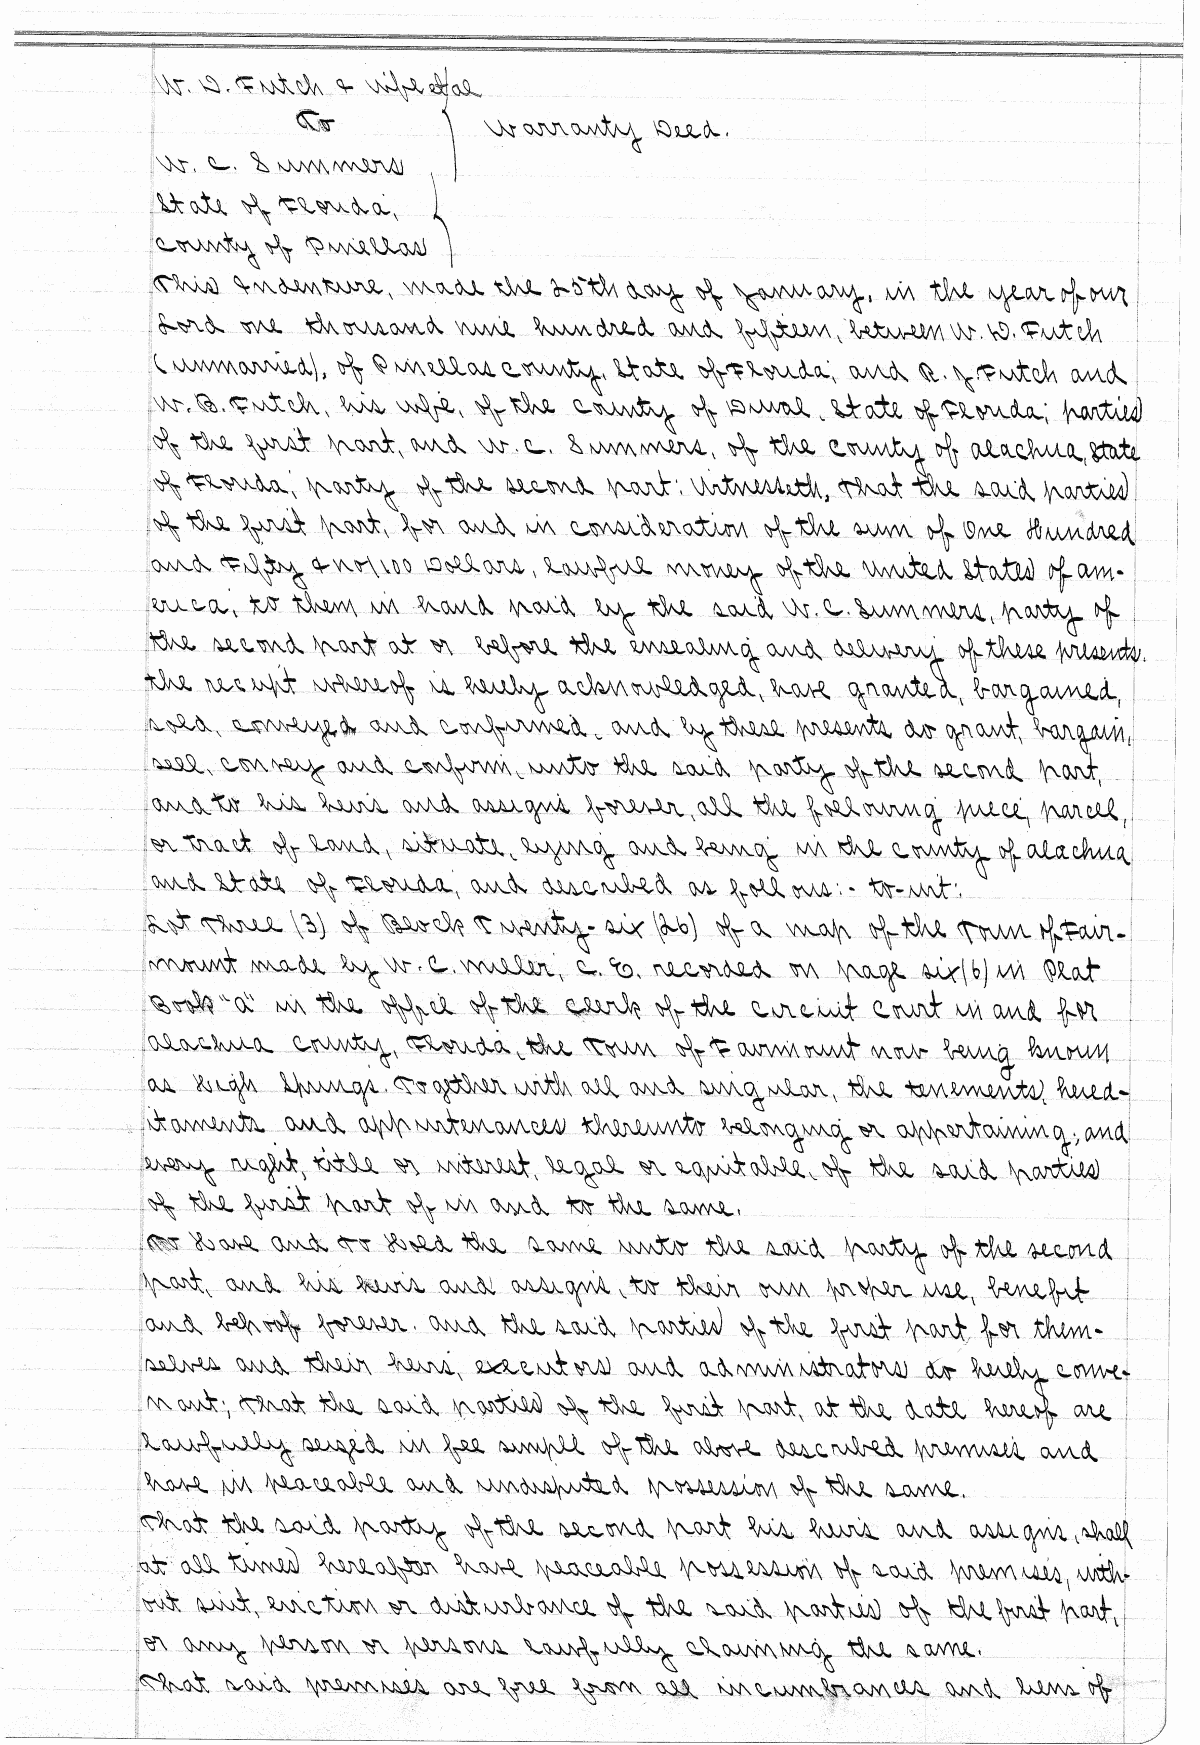 W. D. Futch & wife et al
To
Warranty Deed.
W. C. Summers
State of Florida,
County of Pinellas
This Indenture, made the 25th day of January, in the year of our
Lord one thousand nine hundred and fifteen, between W. D. Futch
(unmarried), of Pinellas County, State of Florida, and R. J. Futch and
W. B. Futch, his wife, of the County of Duval, State of Florida; parties
of the first part, and W. C. Summers, of the County of Alachua, State
of Florida, party of the second part: Witnesseth, That the said parties
of the first part, for and in consideration of the sum of One Hundred
and Fifty & no/100 Dollars, lawful money of the United States of Am-
erica, to them in hand paid by the said W. C. Summers, party of
the second part at or before the ensealing and delivery of these presents.
the receipt whereof is hereby acknowledged, have granted, bargained,
sold, conveyed and confirmed, and by these presents do grant, bargain,
sell, convey and confirm, unto the said party of the second part,
and to his heirs and assigns forever, all the following piece, parcel,
or tract of land, situate, lying and being in the County of Alachua
and State of Florida, and described as follows:- to-wit:
Lot Three (3) of Block Twenty-six (26) of a map of the Town of Fair-
mount made by W. C. Miller, C. E. recorded on page six (6) in Plat
Book "A" in the office of the Clerk of the Circuit Court in and for
Alachua County, Florida, the Town of Fairmount now being known
as High Springs. Together with all and singular, the tenements, hered-
itaments and appurtenances thereunto belonging or appertaining; and
every right, title or interest, legal or equitable, of the said parties
of the first part of in and to the same.
To Have and To Hold the same unto the said party of the second
part, and his heirs and assigns, to their own proper use, benefit
and behoof forever. And the said parties of the first part for them-
selves and their heirs, executors and administrators do hereby conve-
nant; That the said parties of the first part, at the date hereof are
lawfully seized in fee simple of the above described premises and
have in peaceable and undisputed possession of the same.
That the said party of the second part his heirs and assigns, shall
at all times hereafter have peaceable possession of said premises, with-
out suit, eviction or disturbance of the said parties of the first part,
or any person or persons lawfully claiming the same.
That said premises are free from all incumbrances and liens of